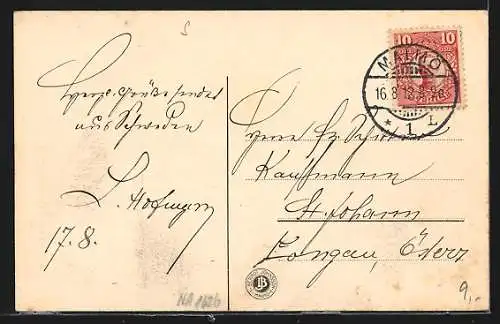 S
Herzl. Grüße sendet
aus Schweden
L. Hofmann
17.8.
10 10
MALMÖ
16.8.
* 1 L
Herrn
Kaufmann
St. Johann
Pongau, Österr.
JB
9,-